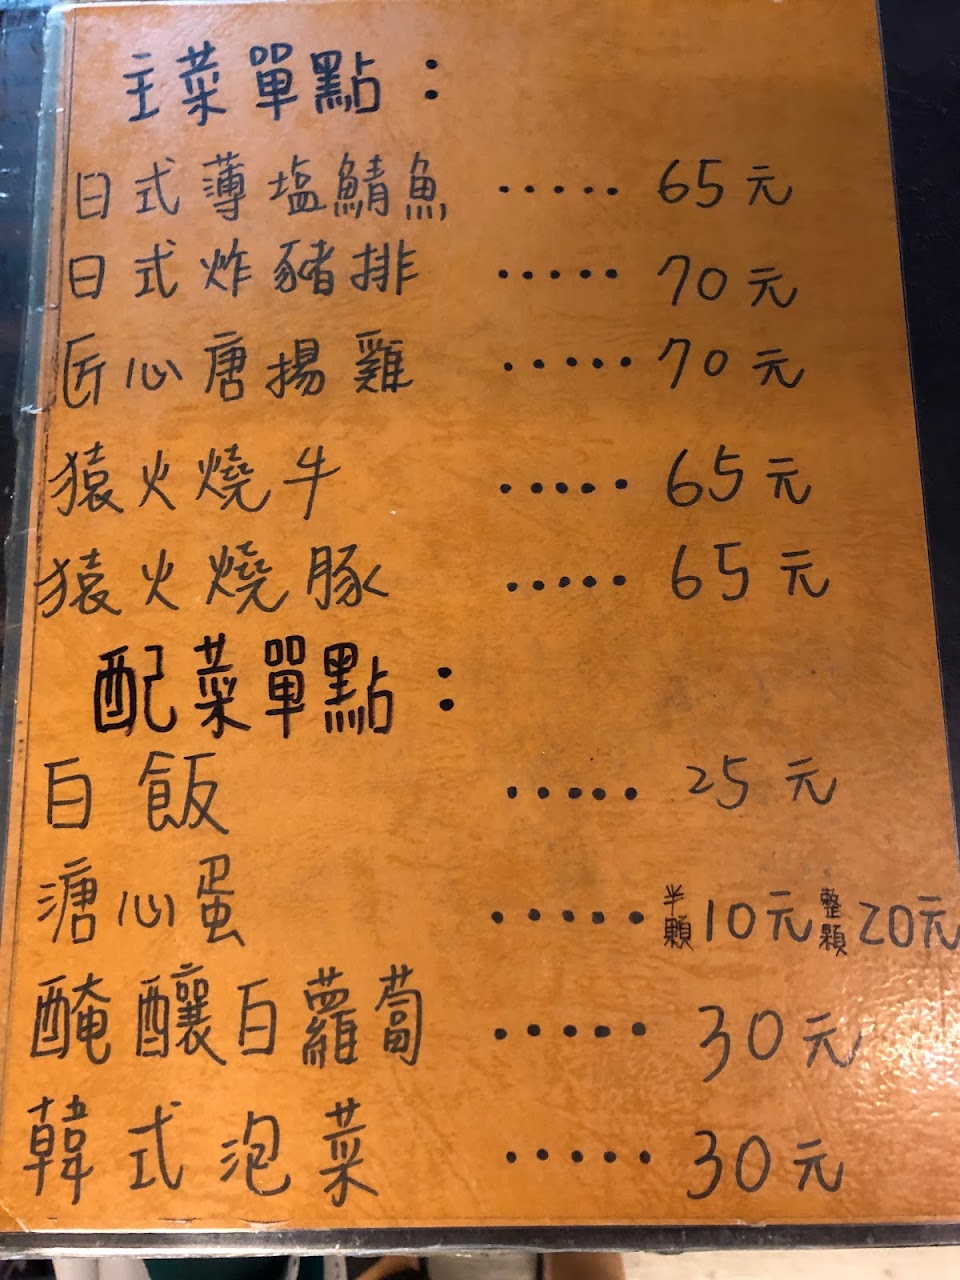 主菜單點：
日式薄塩鯖魚 ····· 65元
日式炸豬排 ····· 70元
匠心唐揚雞 ····· 70元
猿火燒牛 ····· 65元
猿火燒豚 ····· 65元
配菜單點：
白飯 ····· 25元
溏心蛋 ····· 半顆10元整顆20元
醃釀白蘿蔔 ····· 30元
韓式泡菜 ····· 30元